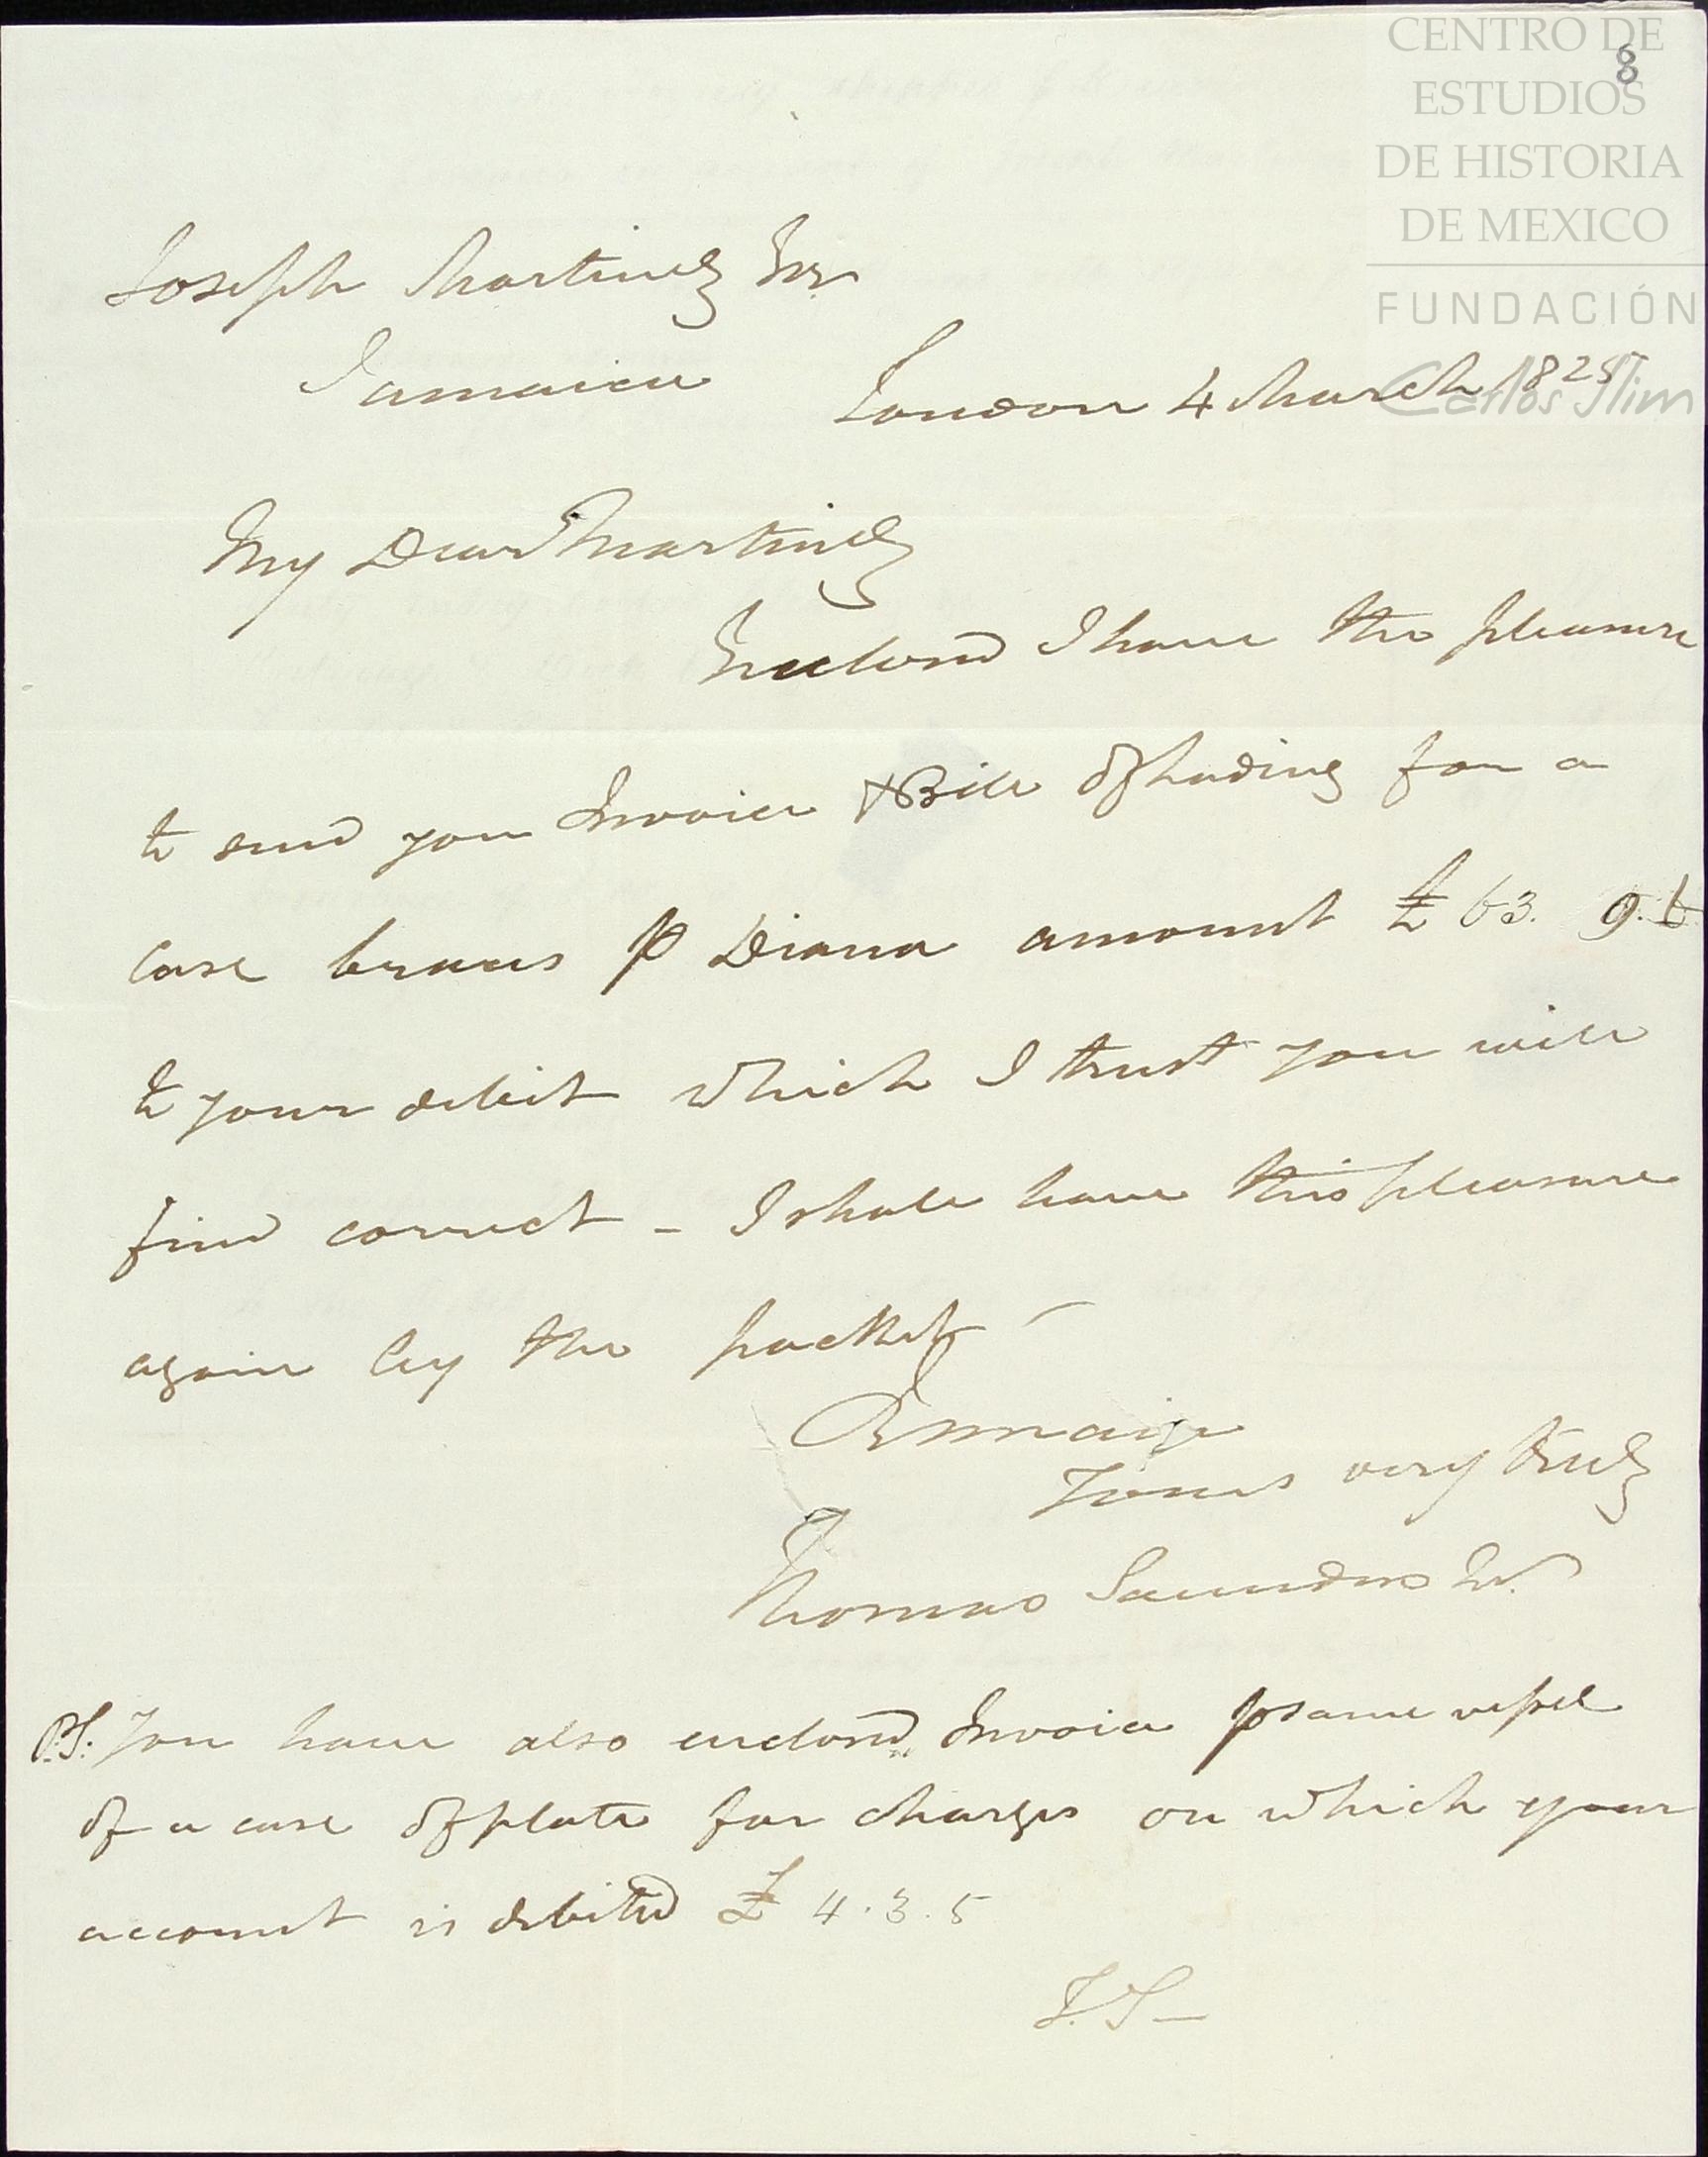 CENTRO DE
ESTUDIOS
DE HISTORIA
DE MEXICO
FUNDACIÓN
Carlos Slim
8
Joseph Martinez Esqr.
Jamaica
London 4 March 1825
My Dear Martinez
Enclosed I have the pleasure
to send you Invoice & Bill of Lading for a
case braces p Diana amount £ 63. 9. 6
to your debit which I trust you will
find correct – I shall have this pleasure
again by the packet –
Remain
Yours very truly
Thomas Saunders
P.S. You have also enclosed Invoice p same vessel
of a case of plate for charges on which your
account is debited £ 4. 3. 5
T. S –